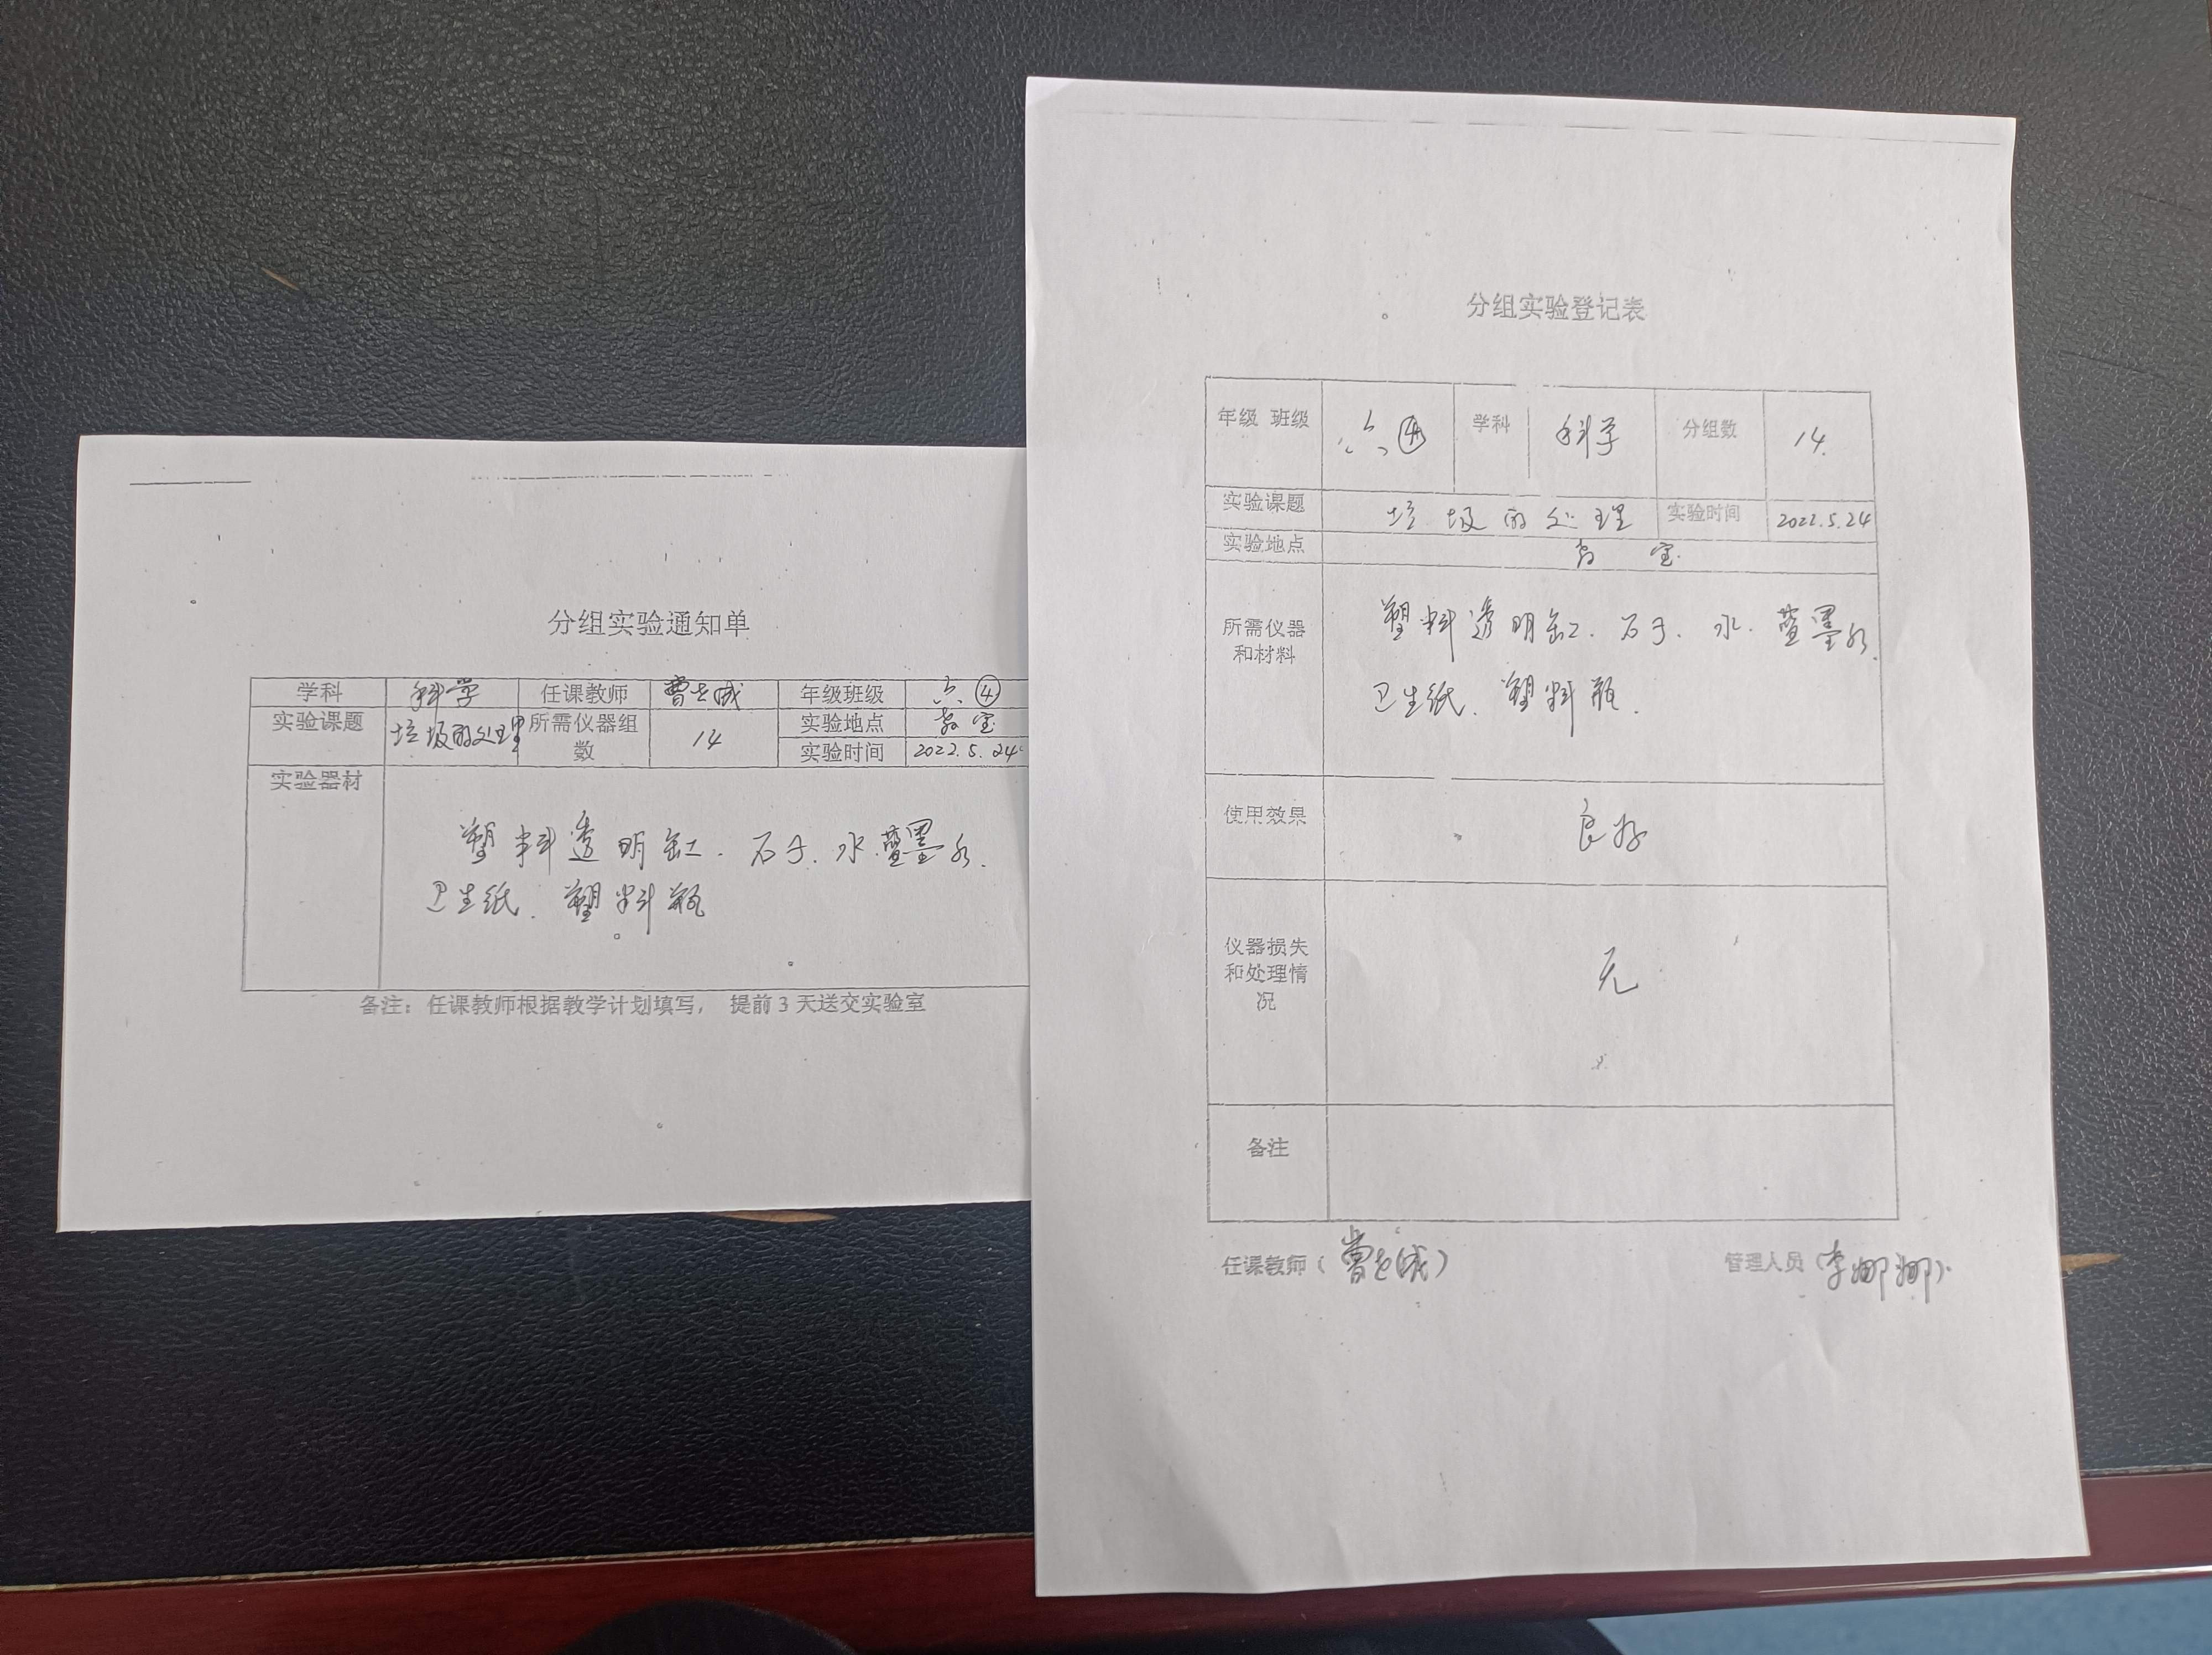 分组实验通知单
学科 科学 任课教师 曹 年级班级 六④
实验课题 垃圾的处理 所需仪器组数 14 实验地点 教室
实验时间 2022.5.24
实验器材
塑料透明缸、石子、水、蓝墨水、
卫生纸、塑料瓶
备注：任课教师根据教学计划填写， 提前3天送交实验室
分组实验登记表
年级 班级 六④ 学科 科学 分组数 14.
实验课题 垃圾的处理 实验时间 2022.5.24
实验地点 教室
所需仪器
和材料
塑料透明缸、石子、水、蓝墨水、
卫生纸、塑料瓶.
使用效果 良好
仪器损失
和处理情
况
无
备注
任课教师（曹） 管理人员（李娜娜）